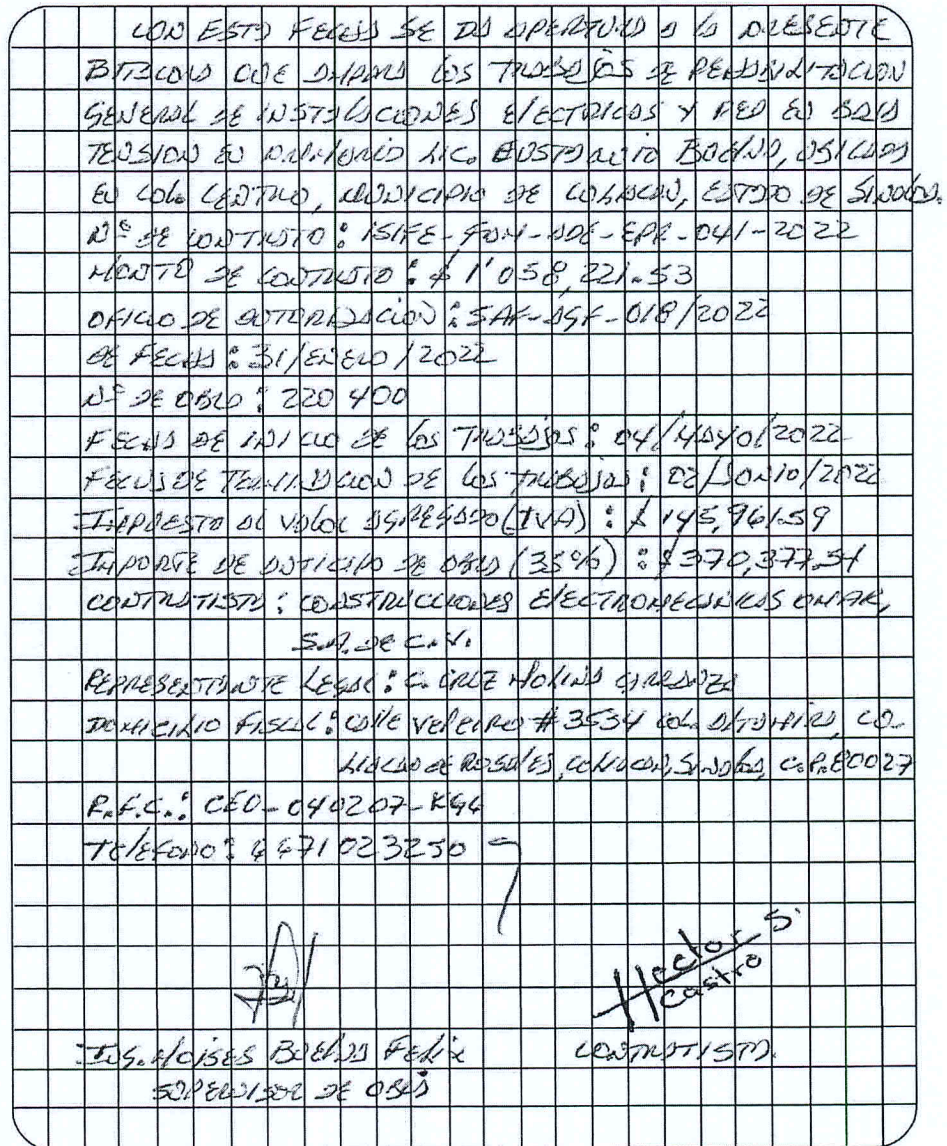 CON ESTA FECHA SE DA APERTURA A LA PRESENTE
BITACORA QUE AMPARA LOS TRABAJOS DE REHABILITACION
GENERAL DE INSTALACIONES ELECTRICAS Y RED EN BAJA
TENSION EN PRIMARIA LIC. BENITO JUAREZ, UBICADA
EN COL. CENTRO, MUNICIPIO DE CULIACAN, ESTADO DE SINALOA.
Nº DE CONTRATO: ISIFE-FAM-ADE-EPR-041-2022
MONTO DE CONTRATO: $1'058,221.53
OFICIO DE AUTORIZACION: SAF-AGF-018/2022
DE FECHA: 31/ENERO/2022
Nº DE OBRA: 220400
FECHA DE INICIO DE LOS TRABAJOS: 04/MAYO/2022
FECHA DE TERMINACION DE LOS TRABAJOS: 02/JUNIO/2022
IMPUESTO AL VALOR AGREGADO (IVA): $145,961.59
IMPORTE DE ANTICIPO DE OBRA (35%): $370,377.54
CONTRATISTA: CONSTRUCCIONES ELECTROMECANICAS OMAR,
S.A. DE C.V.
REPRESENTANTE LEGAL: C. CRUZ MOLINA
DOMICILIO FISCAL: CALLE #3534 COL. CU-
LIACAN DE ROSALES, CULIACAN, SINALOA, C.P. 80027
R.F.C.: CEO-040207-KG4
TELEFONO: 6671023250
Hector S.
Castro
ING. MOISES BUELNA FELIX
CONTRATISTA.
SUPERVISOR DE OBRA